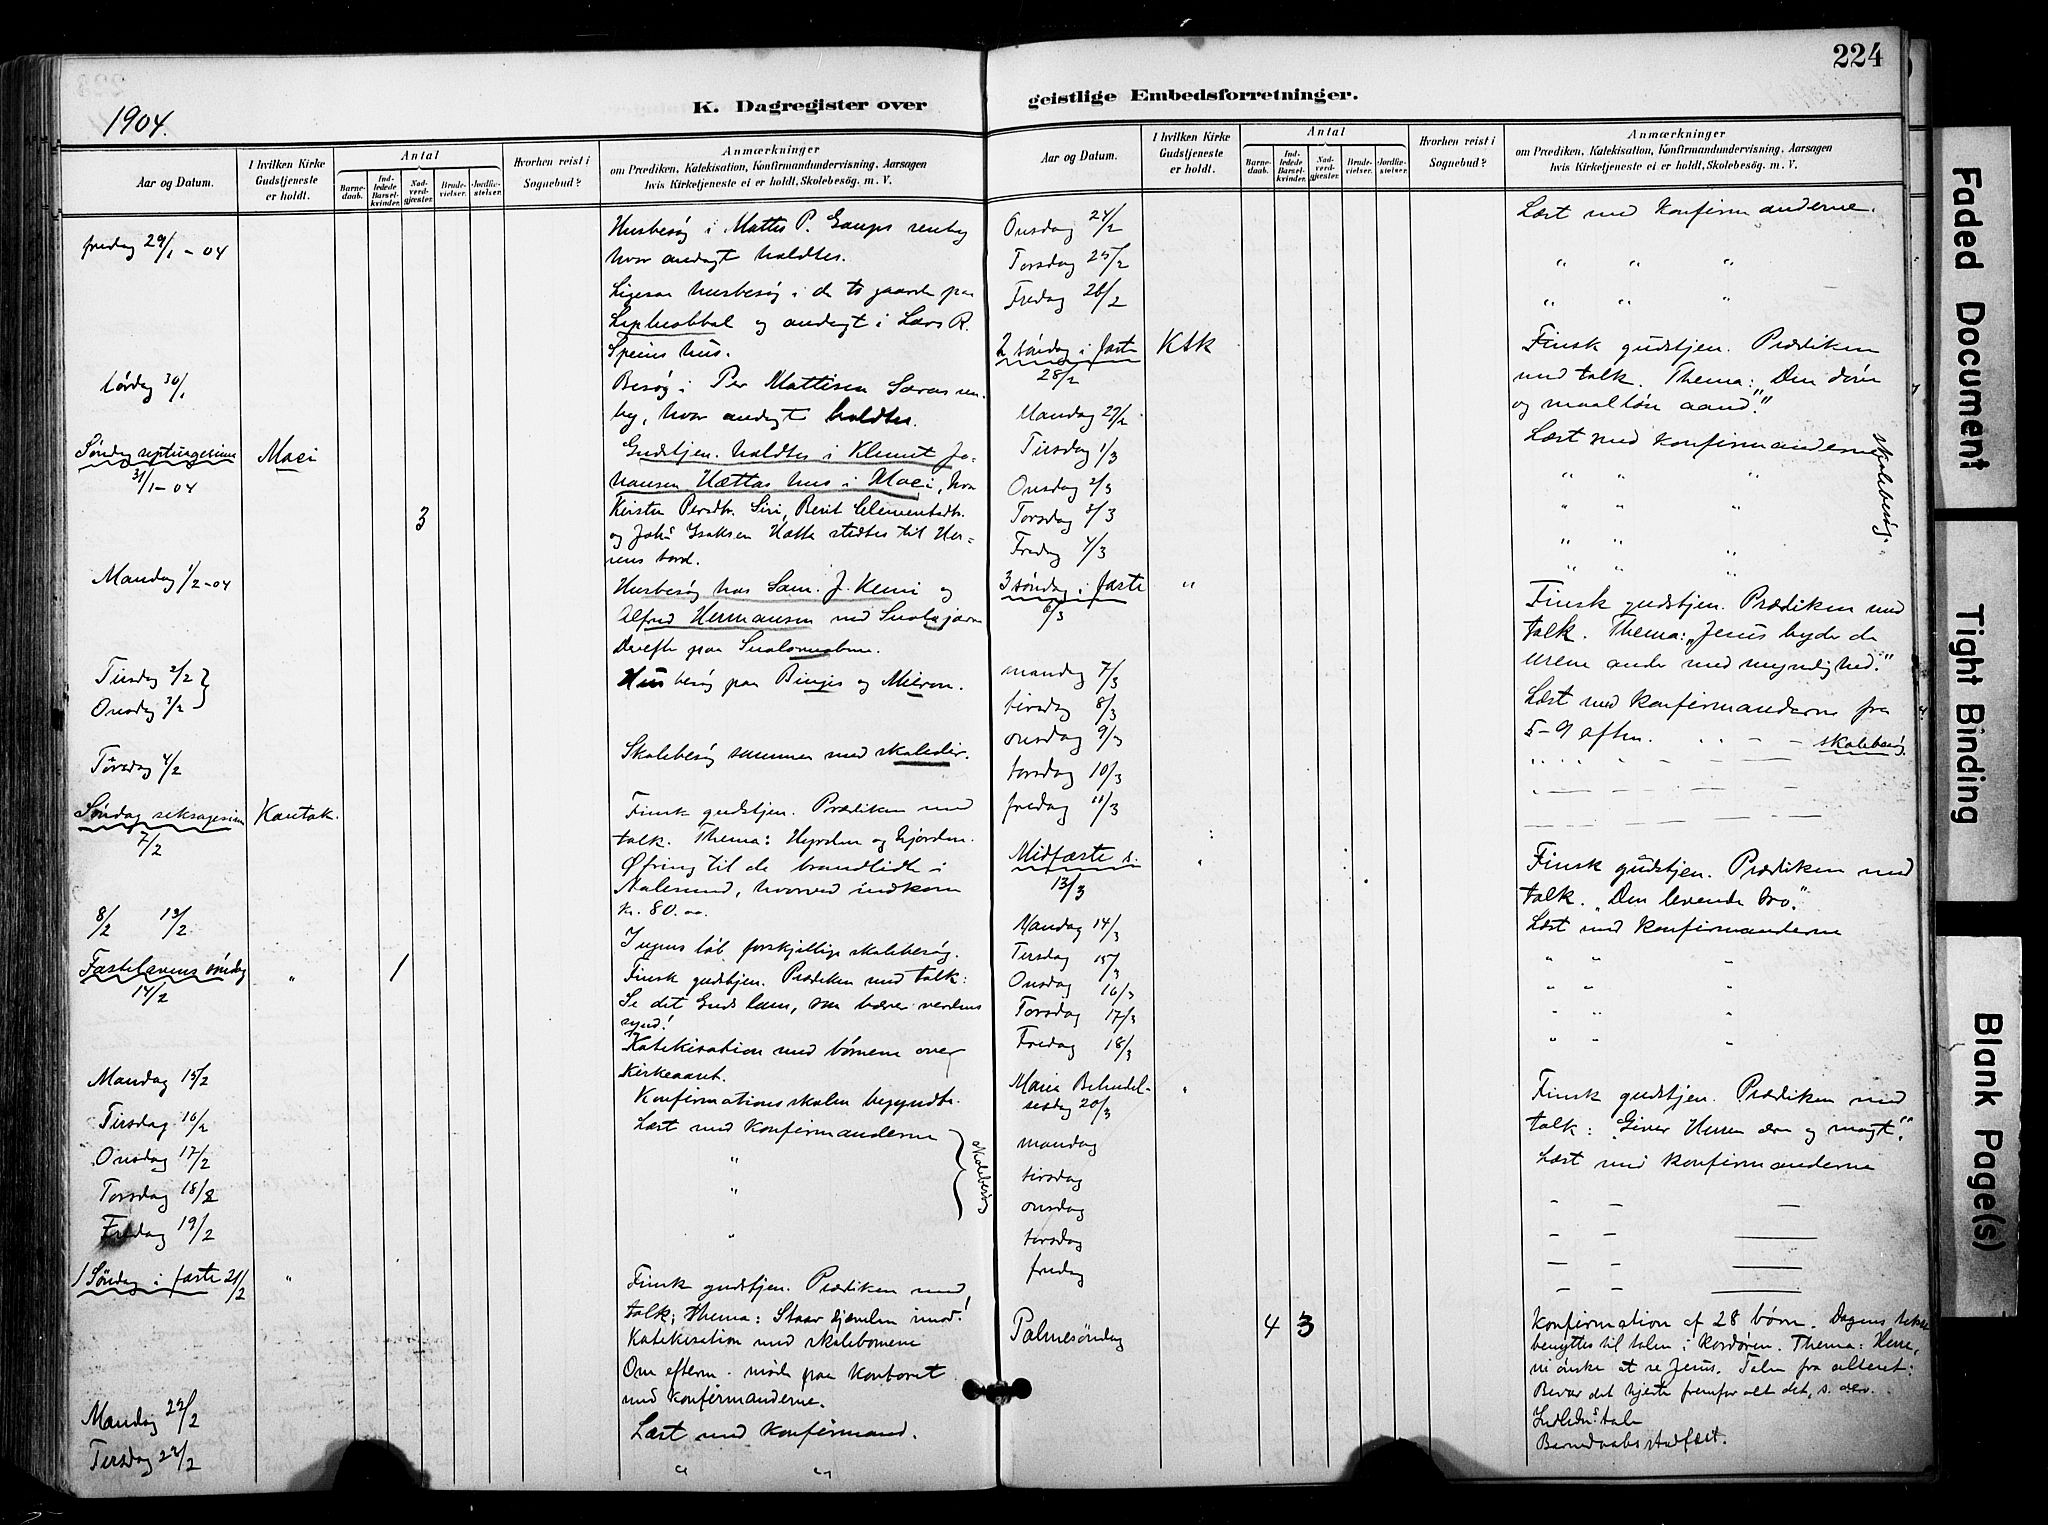 224
K. Dagregister over geistlige Embedsforretninger.
1904.
Aar og Datum.
I hvilken Kirke Gudstjeneste er holdt.
Antal
Barnedaab.
Indledede Barselkvinder.
Nadverdgjester.
Brudevielser.
Jordfæstelser.
Hvorhen reist i Sognebud?
Anmærkninger
om Prædiken, Katekisation, Konfirmandundervisning, Aarsagen
hvis Kirketjeneste ei er holdt, Skolebesøg. m. V.
fredag 29/1 - 04
Husbesøg i Mattis P. Gaups renby
hvor andagt holdtes.
Ligesaa husbesøg i de to gaarde paa
og andagt i Lars R.
hus.
Lørdag 30/1
Besøg i Per Mattisen Saras ren-
by, hvor andagt holdtes.
31/1 - 04
Maci
Gudstjen. holdtes i Klemet Jo-
hansen Hættas hus i Maci, hvor
3
Kirsten Persdtr. Siri, Berit Clementsdtr.
og Joh. Isaksen Hætta stedtes til Her-
rens bord.
Mandag 1/2 - 04
Husbesøg hos Sam. J. Kemi og
Alfred Hermansen ved
Derefter paa
Tirsdag 2/2
Onsdag 3/2
Husbesøg paa og
Torsdag 4/2
Skolebesøg sammen med
Søndag seksagesima
7/2
Kautok.
Finsk gudstjen. Prædiken med
talk. Thema: Hyrden og hjorden.
Ofring til de brandlidte i
Aalesund, hvorved indkom
kr. 80.00.
8/2 13/2
I ugens løb forskjellige skolebesøg.
Fastelavens søndag
14/2
"
1
Finsk gudstjen. Prædiken med talk:
Se det Guds lam, som bærer verdens
synd!
Katekisation med børnene over
kirkeaaret.
Mandag 15/2
Konfirmationsskolen begyndte.
Tirsdag 16/2
Læst med konfirmanderne
Onsdag 17/2
"
Torsdag 18/2
"
Fredag 19/2
"
skolebesøg
1 Søndag i faste 21/2
"
Finsk gudstjen. Prædiken med
talk; Thema: Staar djævelen imod!
Katekisation med skolebørnene
Om efterm. møde paa kontoret
med konfirmanderne.
Mandag 22/2
Læst med konfirmand.
Tirsdag
" "
Aar og Datum.
I hvilken Kirke Gudstjeneste er holdt.
Antal
Barnedaab.
Indledede Barselkvinder.
Nadverdgjester.
Brudevielser.
Jordfæstelser.
Hvorhen reist i Sognebud?
Anmærkninger
om Prædiken, Katekisation, Konfirmandundervisning, Aarsagen
hvis Kirketjeneste ei er holdt, Skolebesög. m. V.
Onsdag 24/2
Læst med Konfirmanderne.
Torsdag 25/2
" " "
Fredag 26/2
" " "
2 søndag i faste
28/2
Ktk
Finsk gudstjen. Prædiken
med talk. Thema: "Den døve
og maalløse aand."
Mandag 29/2
Læst med konfirmanderne
Tirsdag 1/3
" "
Onsdag 2/3
" " "
Torsdag 3/3
" " "
Fredag 4/3
skolebesøg.
3 søndag i faste
6/3
"
Finsk gudstjen. Prædiken med
talk. Thema: "Jesus byder de
urene ander med myndighed."
mandag 7/3
Læst med konfirmanderne fra
tirsdag 8/3
5-9 eftm. skolebesøg
onsdag 9/3
torsdag 10/3
fredag 11/3
Midfaste s.
13/3
"
Finsk gudstjen. Prædiken med
talk. "Den levende tro".
Mandag 14/3
Læst med konfirmanderne
Tirsdag 15/3
" " "
Onsdag 16/3
" " "
Torsdag 17/3
" " "
Fredag 18/3
" " "
Maria Bebudel-
sesdag 20/3
"
Finsk gudstjen. Prædiken med
talk: "Giver Herren ære og magt".
mandag
Læst med konfirmanderne
tirsdag
onsdag
torsdag
fredag
Palmesøndag
4 3
Konfirmation af 28 børn. Dagens tekst
benyttes til talen i kordøren. Thema: Herre,
vi ønske at se Jesus. Talen fra alteret:
Bevar dit hjerte fremfor alt det, s. bev.
Indledn.s tale
Barnedaabs stadfæst.
Faded Document
Tight Binding
Blank Page(s)